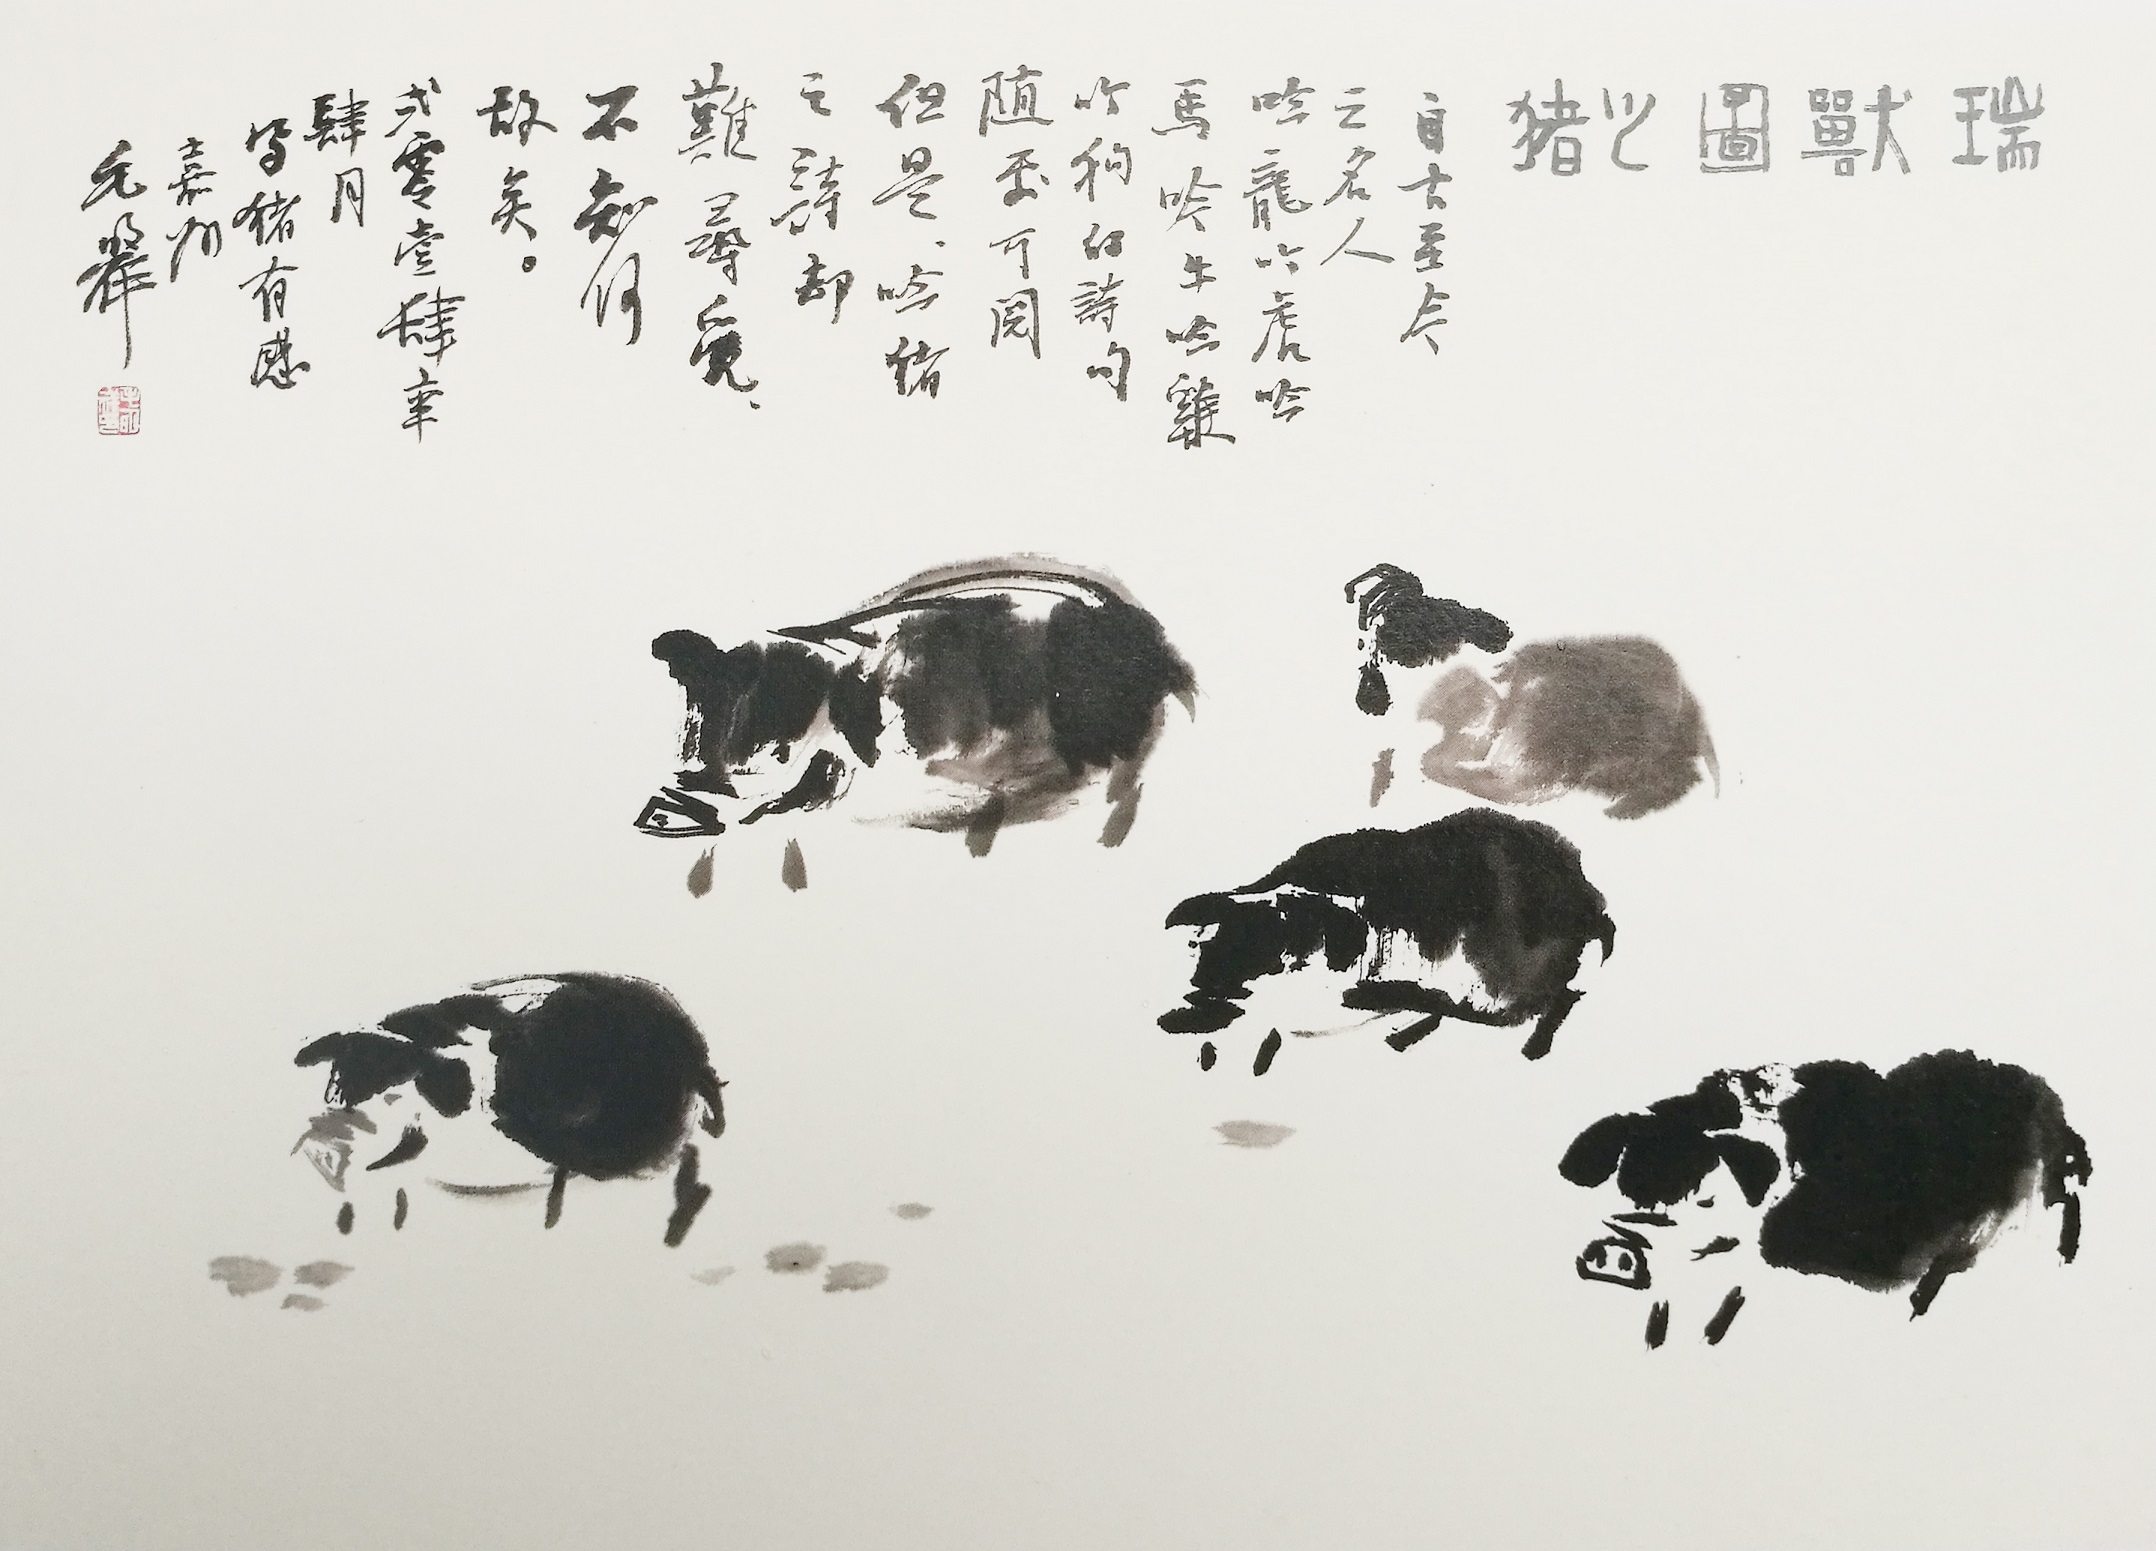 瑞獸圖之猪
自古至今
之名人
吟龍吟虎吟
馬吟牛吟雞
吟狗的詩句
随處可閱
但是、吟猪
之詩却
難尋覓、
不知何
故矣。
弍零壹肆年
肆月
写猪有感
嘉州
毛